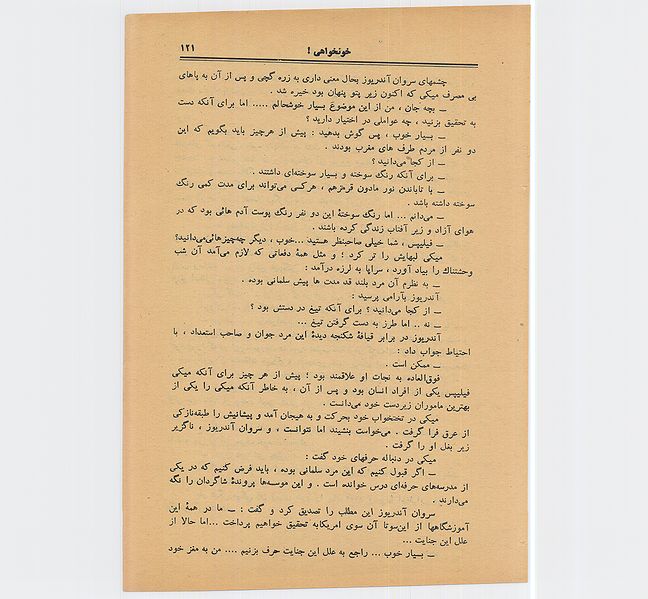 ۱۲۱
خونخواهی !
چشمهای سروان آندریوز بحال معنی داری به زره گچی و پس از آن به پاهای
بی مصرف میکی که اکنون زیر پتو پنهان بود خیره شد .
ــ بچه جان ، من از این موضوع بسیار خوشحالم ..... اما برای آنکه دست
به تحقیق بزنید ، چه عواملی در اختیار دارید ؟
ــ بسیار خوب ، پس گوش بدهید : پیش از هرچیز باید بگویم که این
دو نفر از مردم طرف های مغرب بودند .
ــ از کجا میدانید ؟
ــ برای آنکه رنگ سوخته و بسیار سوخته‌ای داشتند .
ــ با تاباندن نور مادون قرمزهم ، هرکسی می‌تواند برای مدت کمی رنگ
سوخته داشته باشد .
ــ می‌دانم ... اما رنگ سوختهٔ این دو نفر رنگ پوست آدم هائی بود که در
هوای آزاد و زیر آفتاب زندگی کرده باشند .
ــ فیلیپس ، شما خیلی صاحبنظر هستید ...خوب ، دیگر چه‌چیزهائی‌می‌دانید؟
میکی لبهایش را تر کرد ؛ و مثل همهٔ دفعاتی که لازم می‌آمد آن شب
وحشتناک را بیاد آورد ، سراپا به لرزه درآمد :
ــ به نظرم آن مرد بلند قد مدت ها پیش سلمانی بوده .
آندریوز بآرامی پرسید :
ــ از کجا می‌دانید ؟ برای آنکه تیغ در دستش بود ؟
ــ نه .. اما طرز به دست گرفتن تیغ ...
آندریوز در برابر قیافهٔ شکنجه دیدهٔ این مرد جوان و صاحب استعداد ، با
احتیاط جواب داد :
ــ ممکن است .
فوق‌العاده به نجات او علاقمند بود ؛ پیش از هر چیز برای آنکه میکی
فیلیپس یکی از افراد انسان بود و پس از آن ، به خاطر آنکه میکی را یکی از
بهترین ماموران زیردست خود می‌دانست .
میکی در تختخواب خود بحرکت و به هیجان آمد و پیشانیش را طبقه‌نازکی
از عرق فرا گرفت . می‌خواست بنشیند اما نتوانست ، و سروان آندریوز ، ناگزیر
زیر بغل او را گرفت .
میکی در دنباله حرفهای خود گفت :
ــ اگر قبول کنیم که این مرد سلمانی بوده ، باید فرض کنیم که در یکی
از مدرسه‌های حرفه‌ای درس خوانده است . و این موسسه‌ها پروندهٔ شاگردان را نگه
می‌دارند .
سروان آندریوز این مطلب را تصدیق کرد و گفت : ــ ما در همهٔ این
آموزشگاهها از این‌سوتا آن سوی امریکابه تحقیق خواهیم پرداخت ...اما حالا از
علل این جنایت ...
ــ بسیار خوب ... راجع به علل این جنایت حرف بزنیم .... من به مغز خود